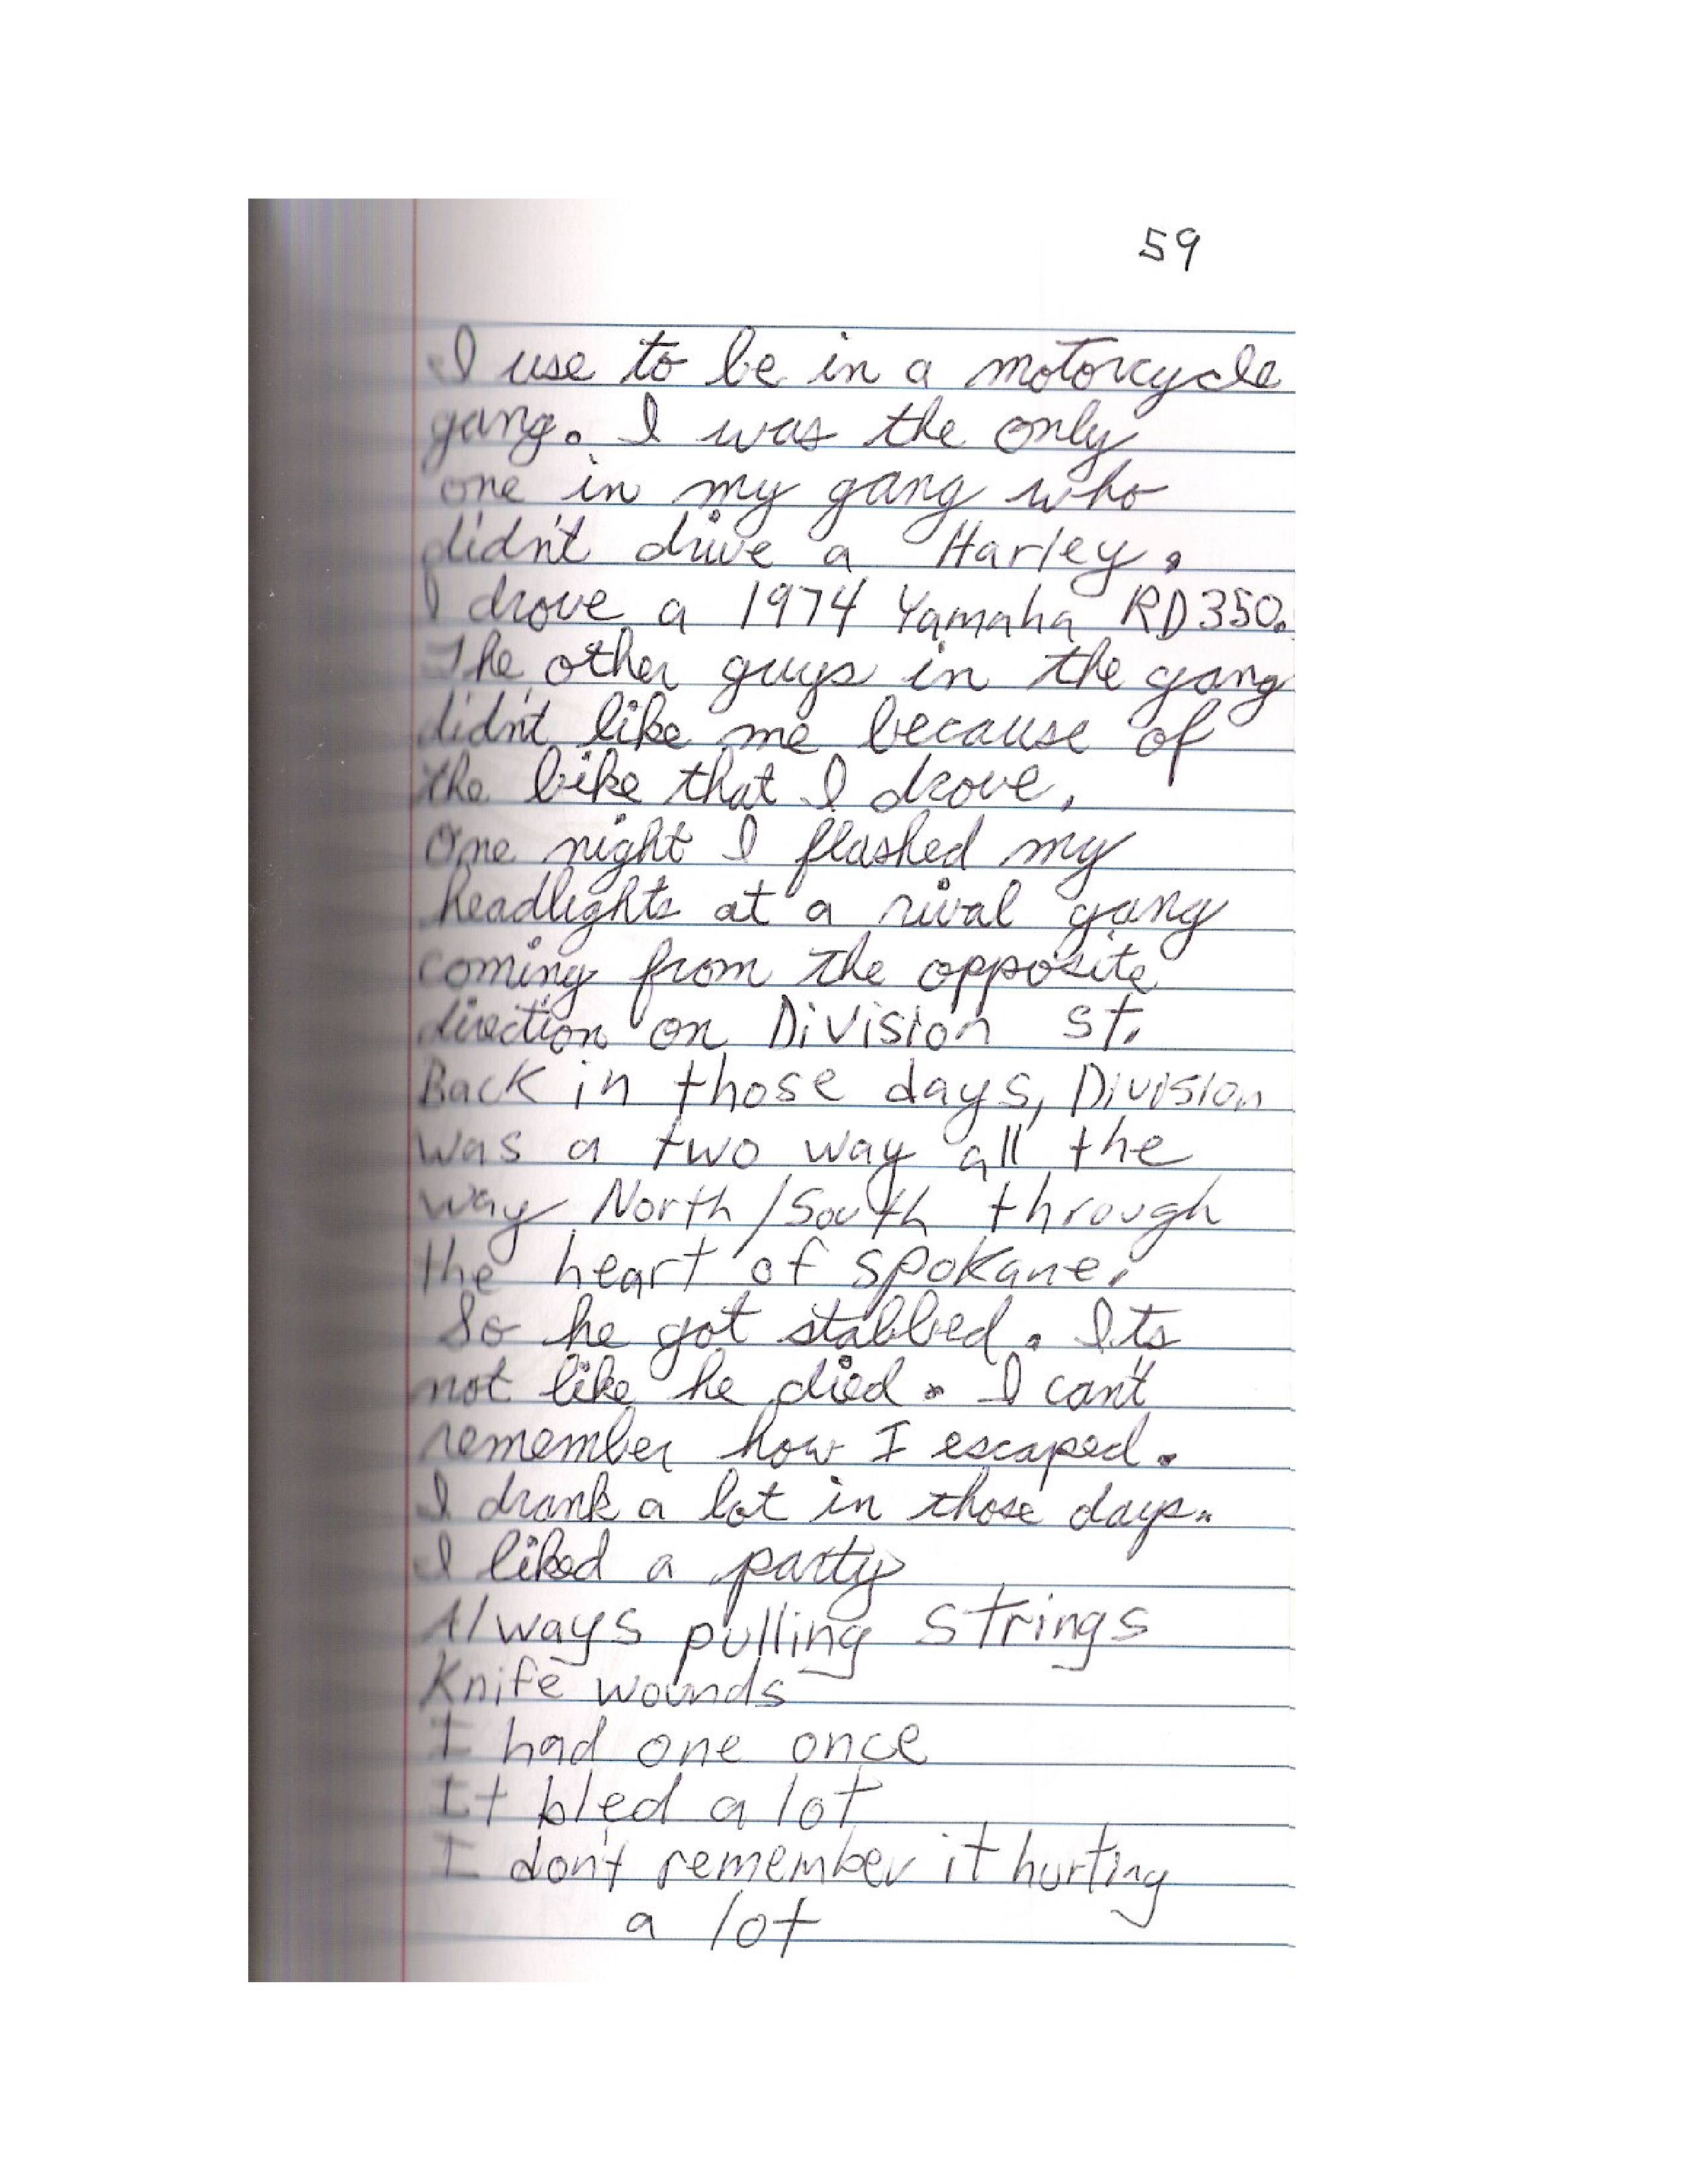 59
I use to be in a motorcycle
gang. I was the only
one in my gang who
didn't drive a Harley.
I drove a 1974 Yamaha RD350.
The other guys in the gang
didn't like me because of
the bike that I drove.
One night I flashed my
headlights at a rival gang
coming from the opposite
direction on Division St.
Back in those days, Division
was a two way all the
way North/South through
the heart of Spokane.
So he got stabbed. Its
not like he died. I can't
remember how I escaped.
I drank a lot in those days.
I liked a party
Always pulling strings
Knife wounds
I had one once
It bled a lot
I don't remember it hurting
a lot